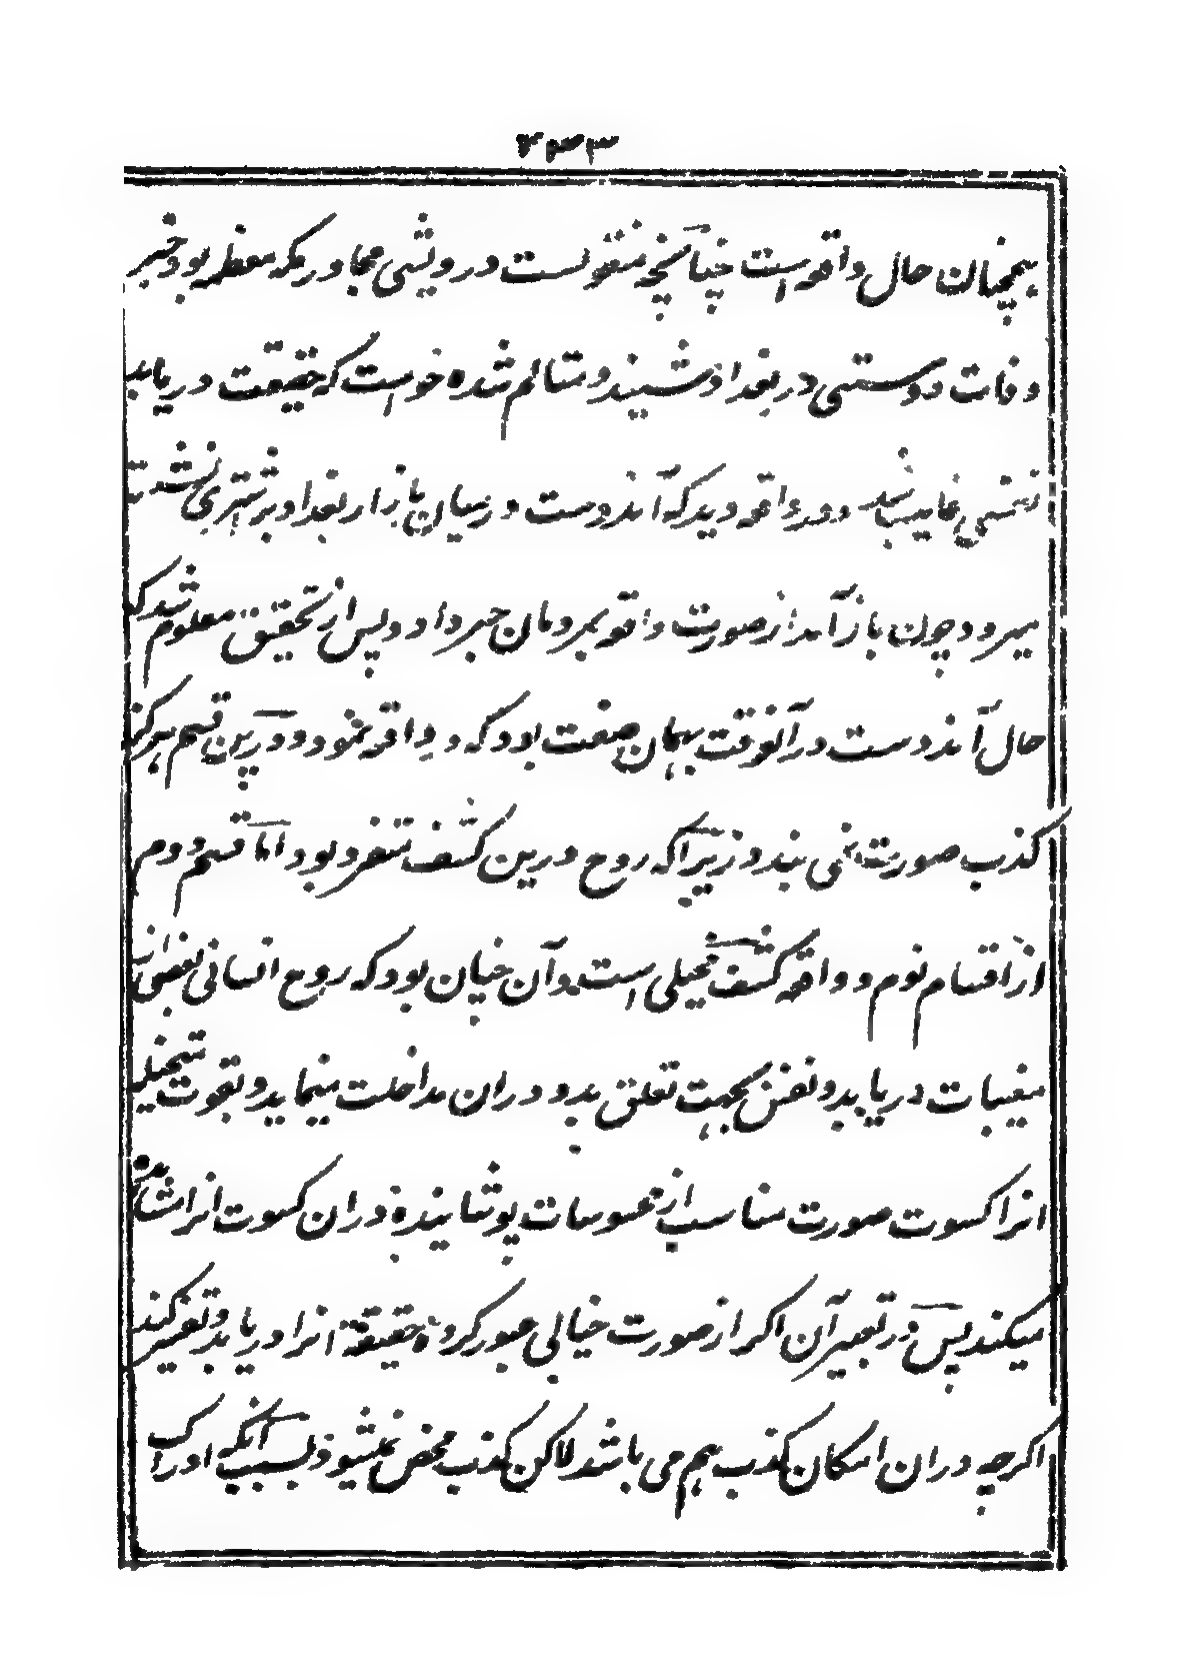 ۴۳۳
همچنان حال واقعه است چنانچه منقولست درویشی مجاور مکه معظمه بود خبر
وفات دوستی در بغداد شنید و متالم شده خواست که حقیقت دریابد
نفسی غایب شد و در واقعه دید که آندوست در میان بازار بغداد بر شتری نشسته
میرود چون باز آمد از صورت واقعه بمردمان خبر داد و پس از تحقیق معلوم شد که
حال آندوست در آنوقت بهمان صفت بود که در واقعه نمود و درین قسم هرگز
کذب صورت نمی بندد زیراکه روح درین کشف متفرد بود اما قسم دوم
از اقسام نوم و واقعه کشف مخیلی است و آن چنان بود که روح انسانی بعضی از
مغیبات دریابد و نفس بجهت تعلق بدو دران مداخلت مینماید و بقوت متخیله
انرا کسوت صورت مناسب از محسوسات پوشانیده دران کسوت انرا مشاهده
میکند پس در تعبیر آن اکر از صورت خیالی عبور کرده حقیقة انرا دریابد و تعبیر کند
اکرچه دران امکان کذب هم می باشد لاکن کذب محض نمیشود بسبب آنکه ادراک